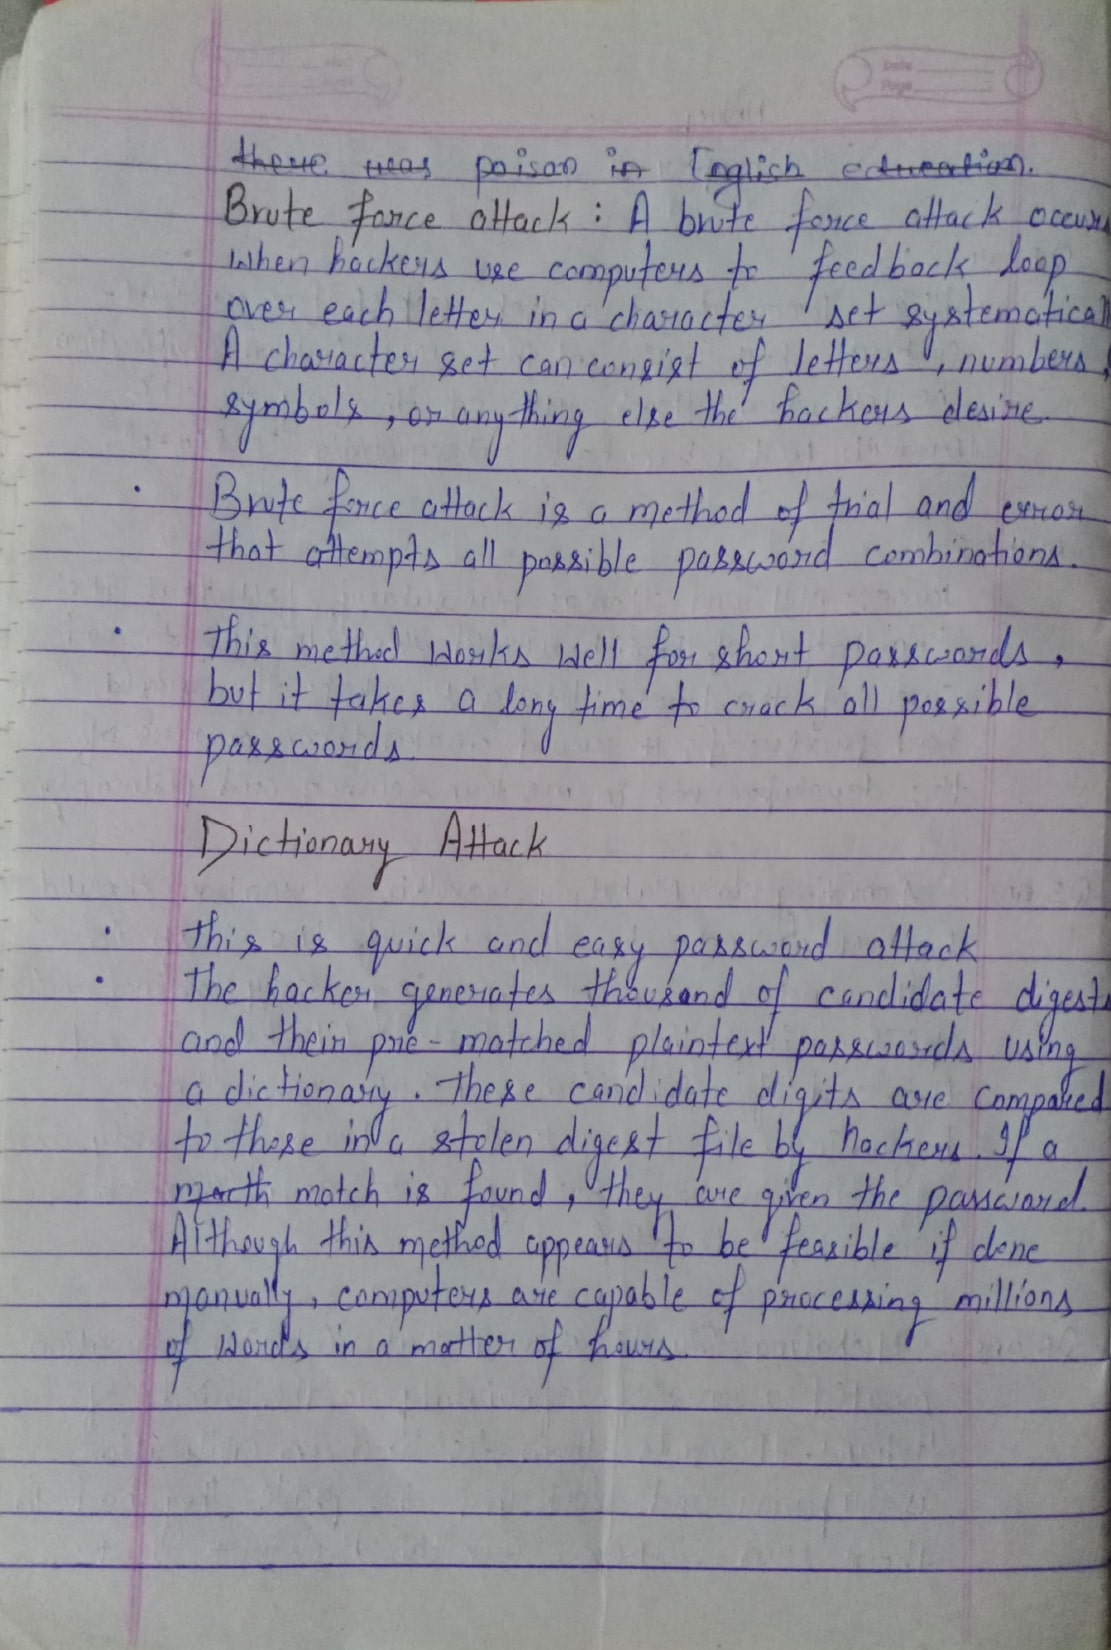 Date
Page
there was poison in English education.
Brute force attack : A brute force attack occurs
when hackers use computers to feedback loop
over each letter in a character set systematicall
A character set can consist of letters, numbers,
symbols, or anything else the hackers desire.
· Brute force attack is a method of trial and error
that attempts all possible password combinations.
· This method works well for short passwords,
but it takes a long time to crack all possible
passwords.
Dictionary Attack
· This is quick and easy password attack
· The hacker generates thousand of candidate digests
and their pre-matched plaintext passwords using
a dictionary. These candidate digits are compared
to those in a stolen digest file by hackers. If a
match is found, they are given the password.
Although this method appears to be feasible if done
manually, computers are capable of processing millions
of words in a matter of hours.